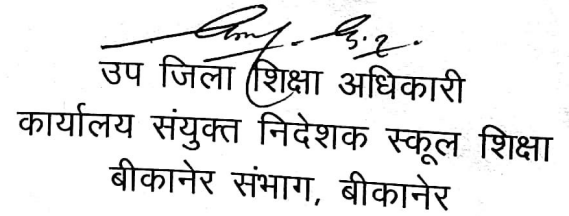 उप जिला शिक्षा अधिकारी
कार्यालय संयुक्त निदेशक स्कूल शिक्षा
बीकानेर संभाग, बीकानेर